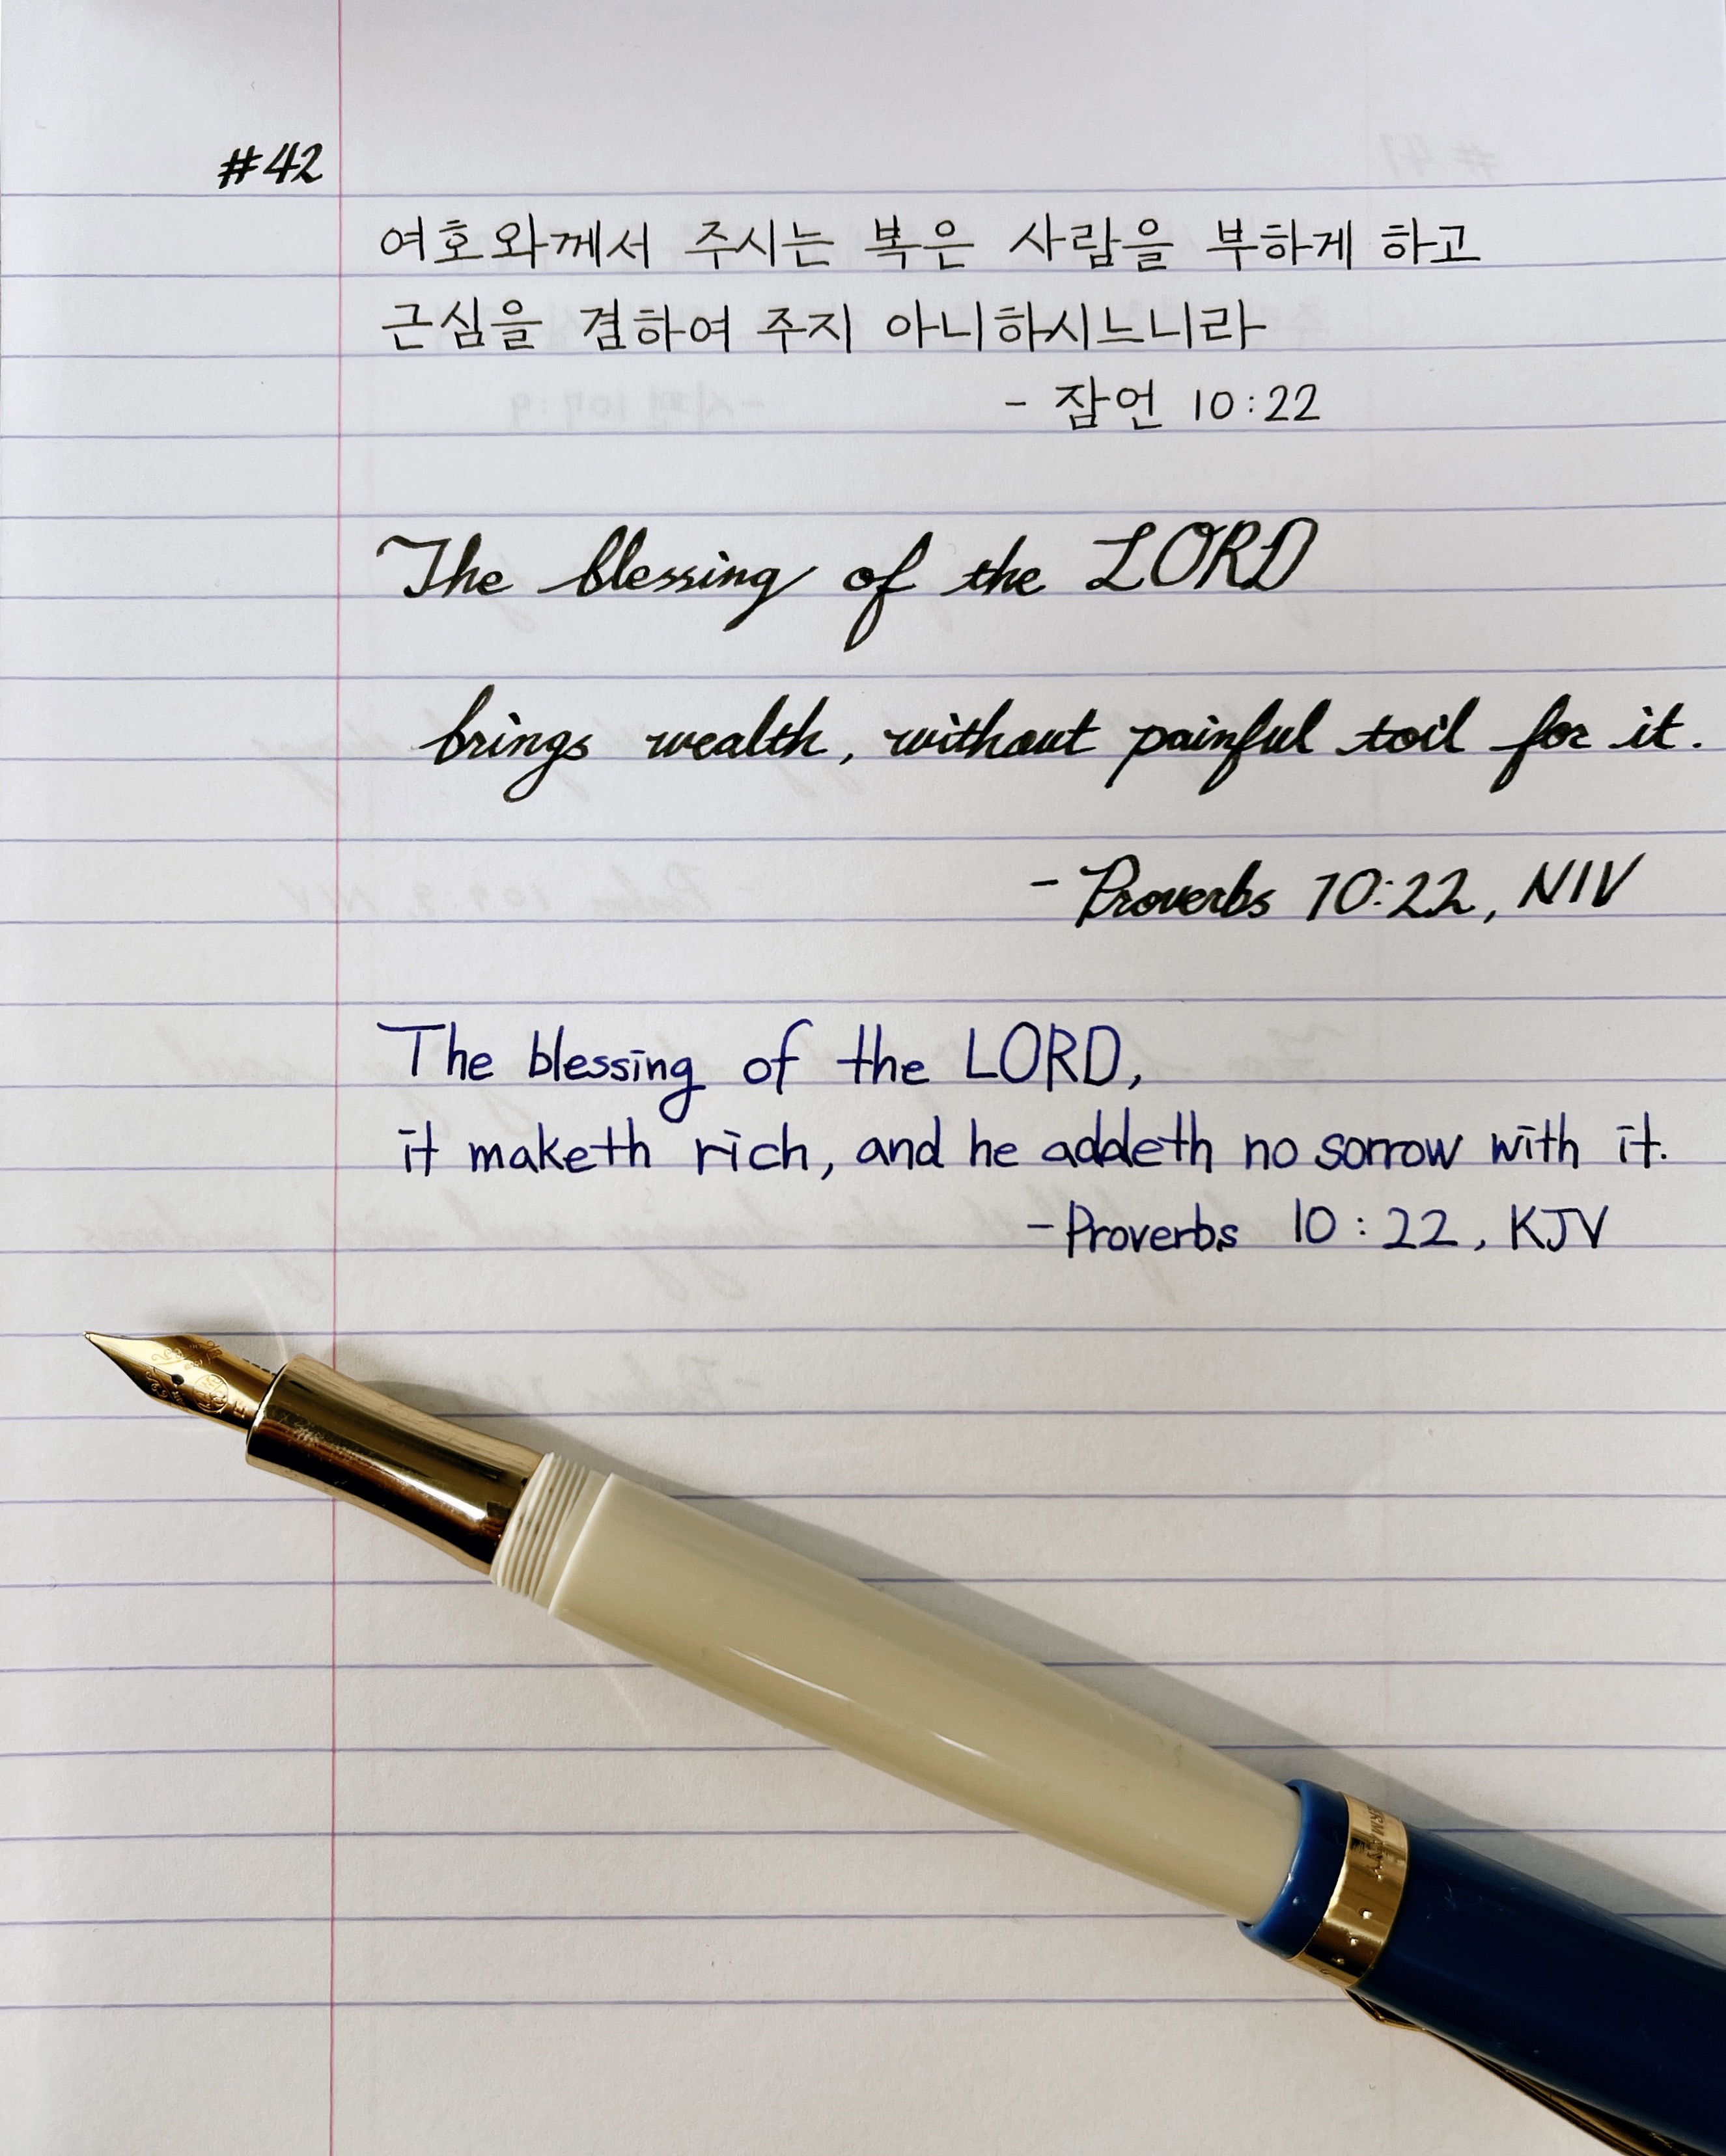 #42
여호와께서 주시는 복은 사람을 부하게 하고
근심을 겸하여 주지 아니하시느니라
- 잠언 10:22
The blessing of the LORD
brings wealth, without painful toil for it.
- Proverbs 10:22, NIV
The blessing of the LORD,
it maketh rich, and he addeth no sorrow with it.
- Proverbs 10:22, KJV